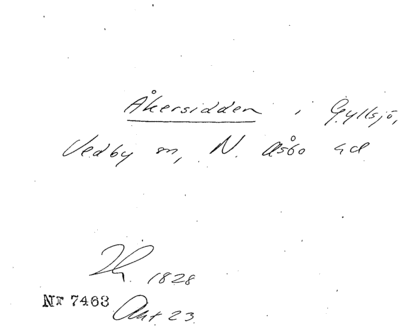 Åkersidden i Gyllsjö,
Vedby sn, N. Åsbo hd
1828
Nr 7463 Akt 23